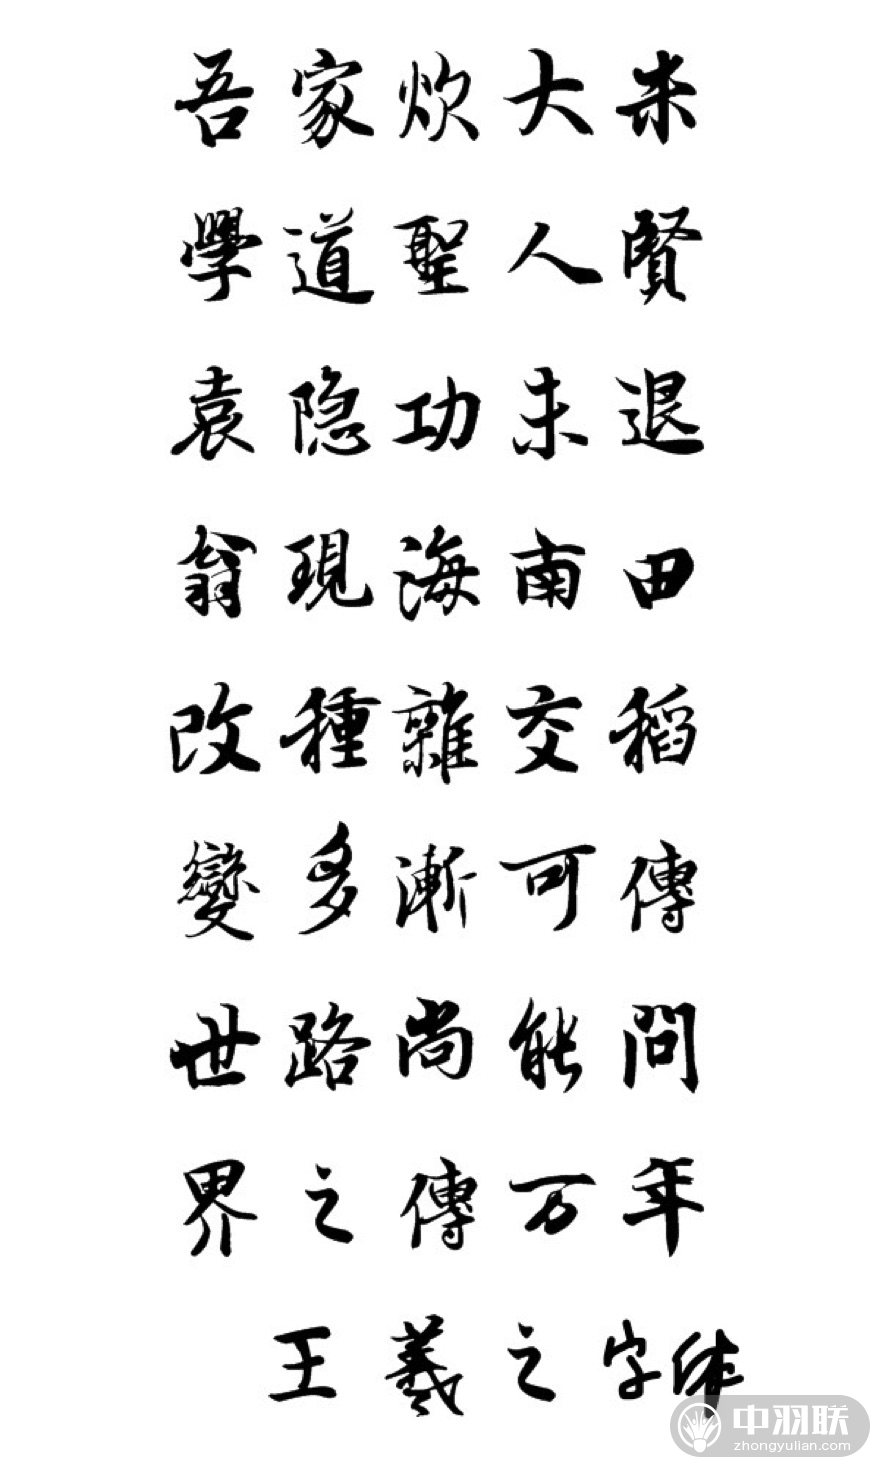 吾家炊大米
學道聖人賢
袁隐功未退
翁現海南田
改種雜交稻
變多漸可傳
世路尚能問
界之傳万年
王羲之字体
中羽联
zhongyulian.com